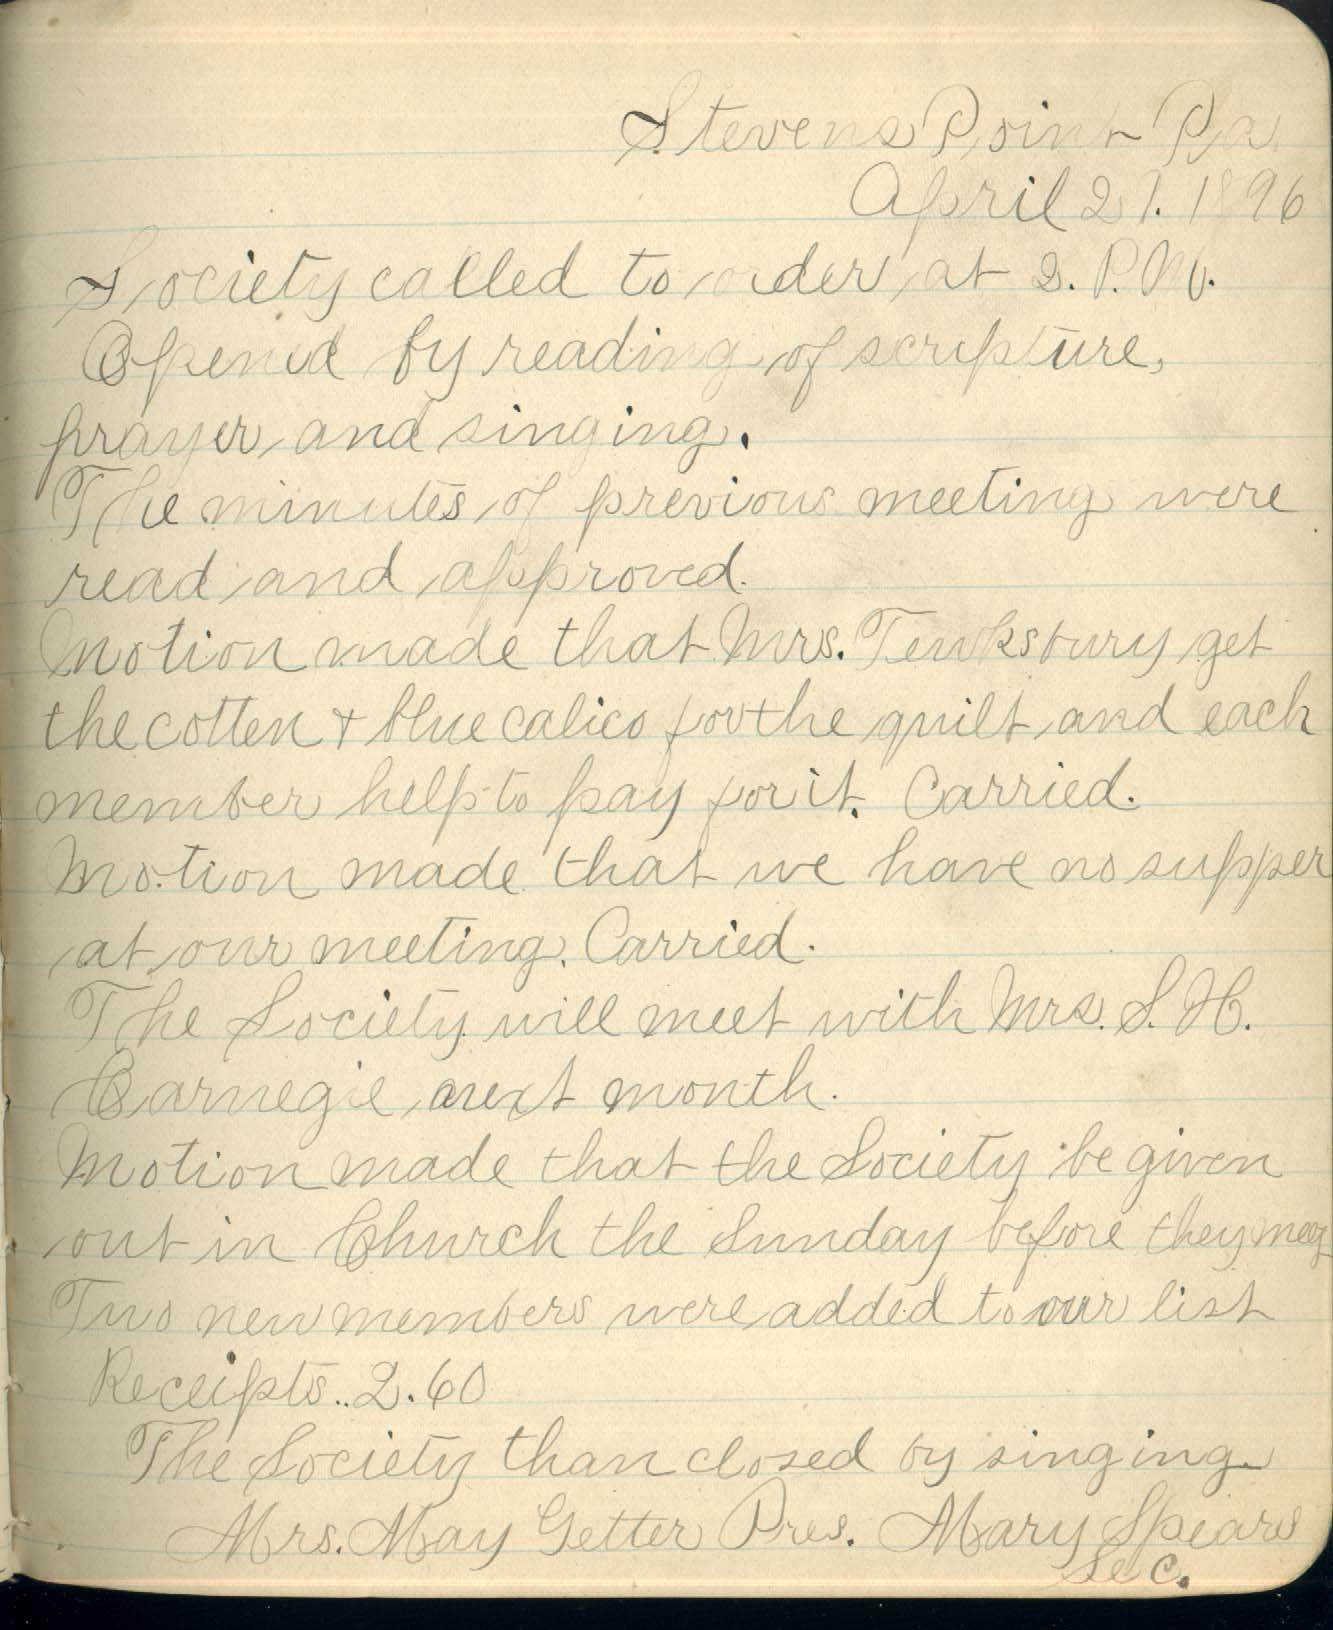 Stevens Point Pa.
April 21. 1896
Society called to order at 2. P.M.
Opened by reading of scripture,
prayer and singing.
The minutes of previous meeting were
read and approved.
Motion made that Mrs. Tewksbury get
the cotten + blue calico for the quilt and each
member help to pay for it. Carried.
Motion made that we have no supper
at our meeting. Carried.
The Society will meet with Mrs. S. H.
Carnegie next month.
Motion made that the Society be given
out in Church the Sunday before they meet
Two new members were added to our list
Receipts.. 2.60
The Society than closed by singing.
Mrs. May Getter Pres. Mary Spears
Sec.